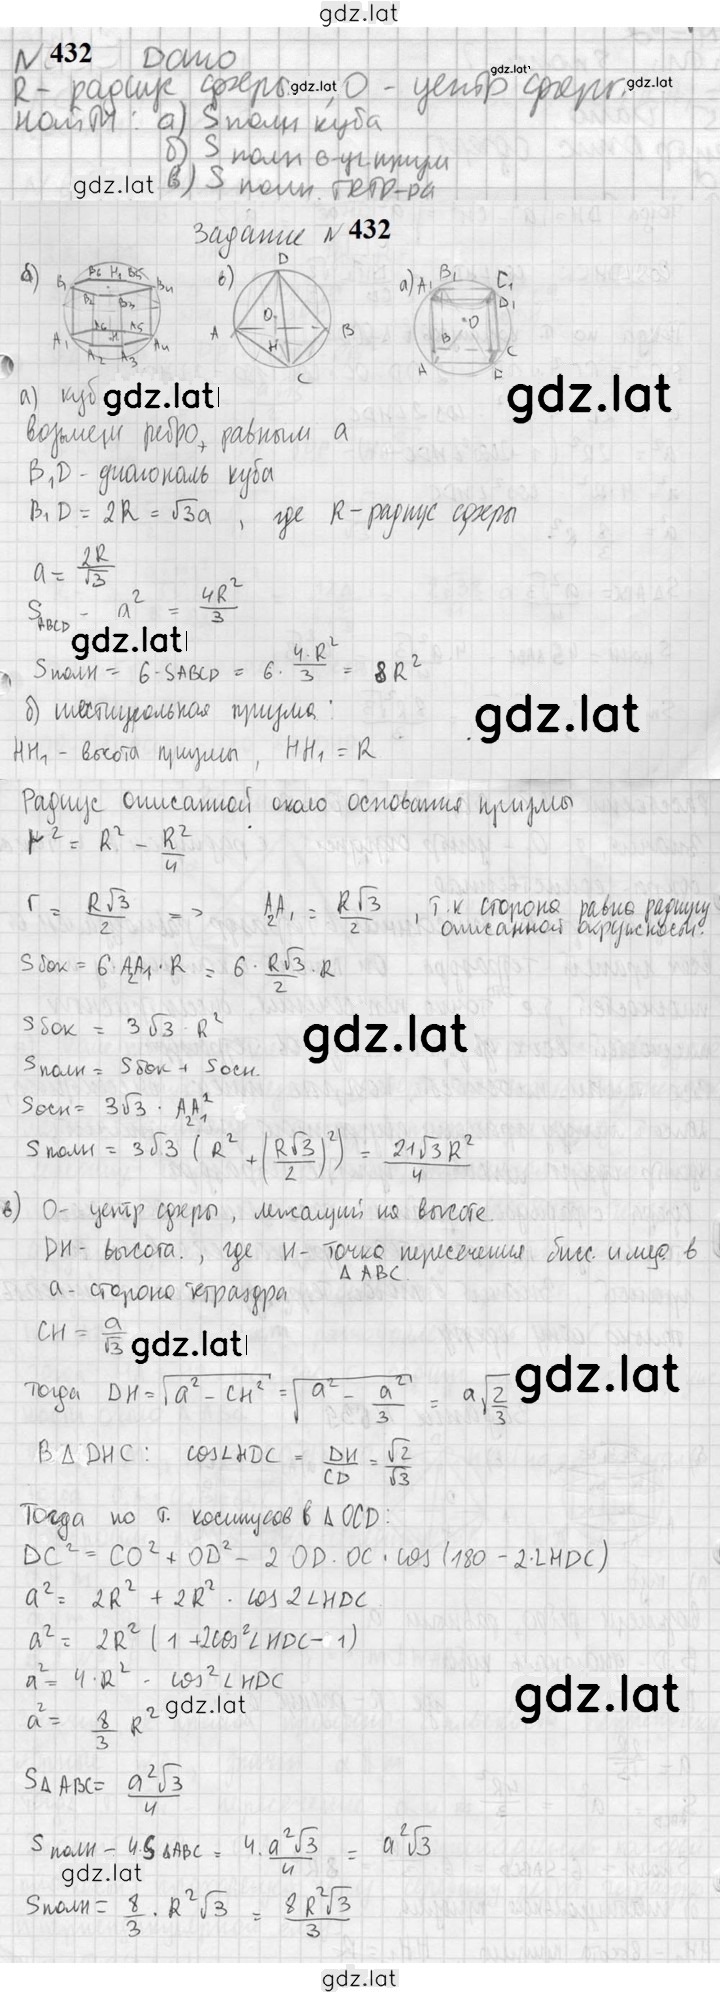 gdz.lat
N 432 Дано
R - радиус сферы gdz.lat, O - центр сферы. gdz.lat
найти: а) Sполн куба
б) S полн 6-уг призм
gdz.lat в) S полн. тетр-ра
Задание N 432
б) B₁ B₆ H₁ B₅ B₄ B₂ B₃ A₆ A₅ A₁ H A₄ A₂ A₃
в) D O A B H C
а) A₁ B₁ C₁ D₁ O B C A
а) куб gdz.lat
gdz.lat
возьмем ребро, равным a
B₁D - диагональ куба
B₁D = 2R = √3a , где R - радиус сферы
a = 2R/√3
S ABCD - a² = 4R²/3
gdz.lat
Sполн = 6·SABCD = 6· 4·R²/3 = 8R²
gdz.lat
б) шестиугольная призма:
HH₁ - высота призмы, HH₁ = R
Радиус описанной около основания призмы
r² = R² - R²/4
r = R√3/2 => A₂A₁ = R√3/2 , т.к сторона равна радиусу описанной окружности.
Sбок = 6·A₂A₁·R = 6· R√3/2 ·R
Sбок = 3√3·R²
gdz.lat
Sполн = Sбок + Sосн.
Sосн = 3√3 · A₂A₁²
Sполн = 3√3 (R² + (R√3/2)²) = 21√3R²/4
в) O - центр сферы, лежащий на высоте.
DH - высота., где H - точка пересечения бисс. и мед. в ΔABC.
a - сторона тетраэдра
CH = a/√3
gdz.lat
Тогда DH = √a² - CH² = √a² - a²/3 = a√2/3
gdz.lat
В ΔDHC: cos∠HDC = DH/CD = √2/√3
Тогда по т. косинусов в ΔOCD:
DC² = CO² + OD² - 2·OD·OC·cos(180 - 2·∠HDC)
a² = 2R² + 2R² · cos2∠HDC
a² = 2R² (1 + 2cos²∠HDC - 1)
a² = 4·R² · cos²∠HDC
gdz.lat
gdz.lat
a² = 8/3 R²
SΔABC = a²√3/4
Sполн - 4·SΔABC = 4·a²√3/4 = a²√3
gdz.lat
Sполн = 8/3 · R²√3 = 8R²√3/3
gdz.lat